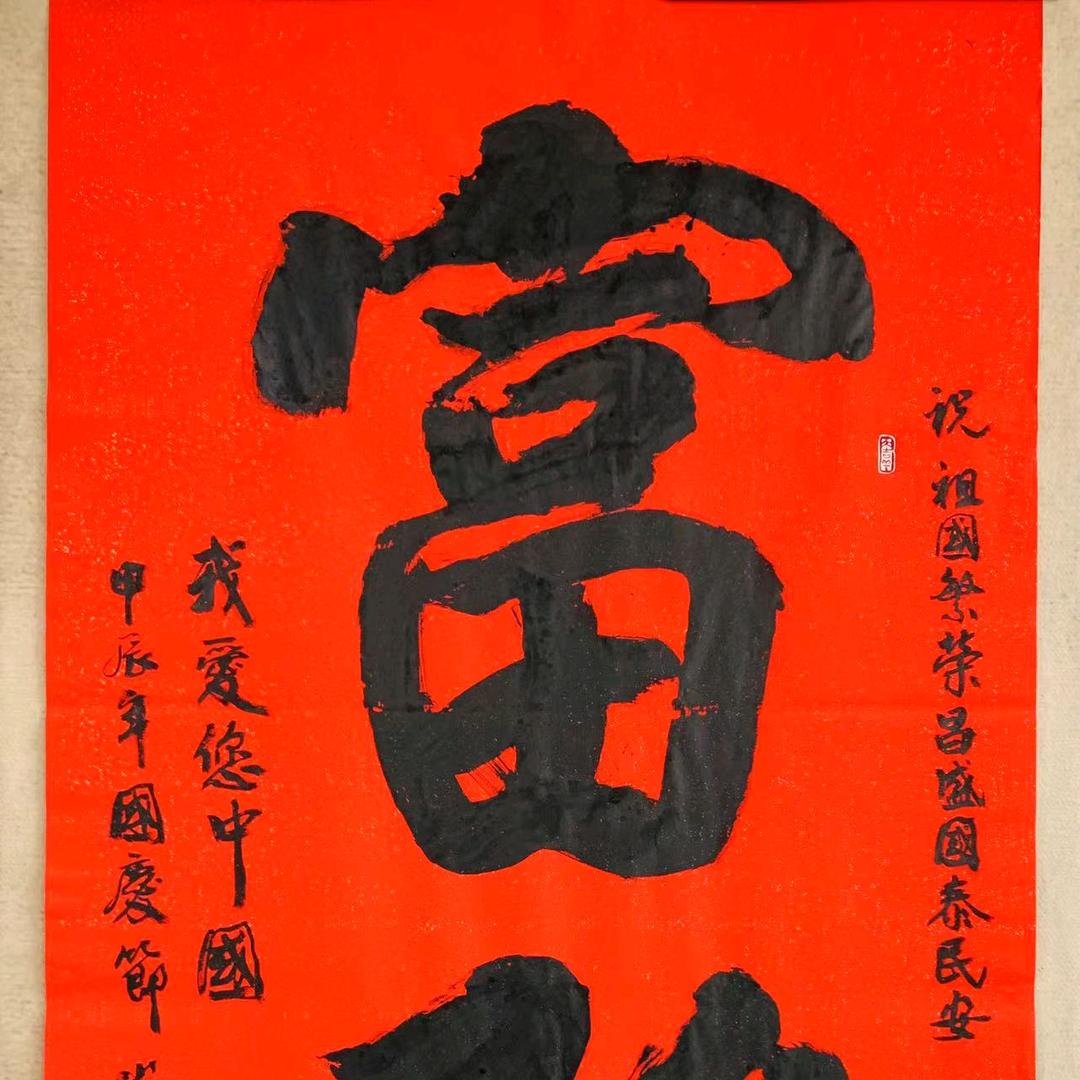 祝祖國繁榮昌盛國泰民安
富
我愛您中國
甲辰年國慶節